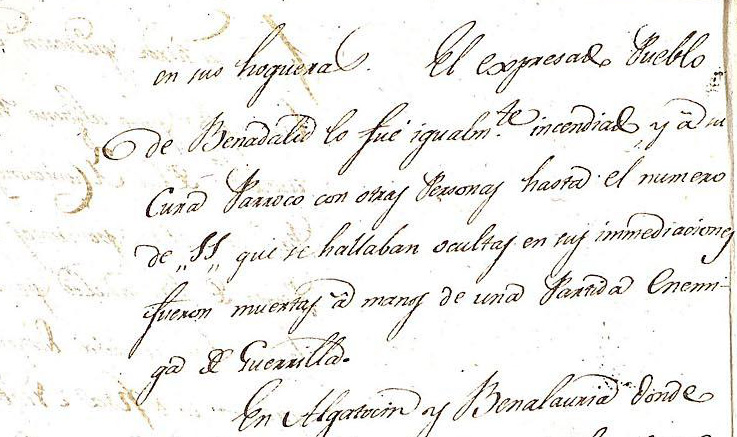 en sus hogueras. El expresado Pueblo
de Benadalid lo fué igualm.te incendiado, y â su
Cura Parroco con otras Personas hasta el numero
de „11„ que se hallaban ocultas en sus immediaciones
fueron muertas â manos de una Partida Enemi-
ga de Guerrilla.
En Algatocin y Benalauria donde